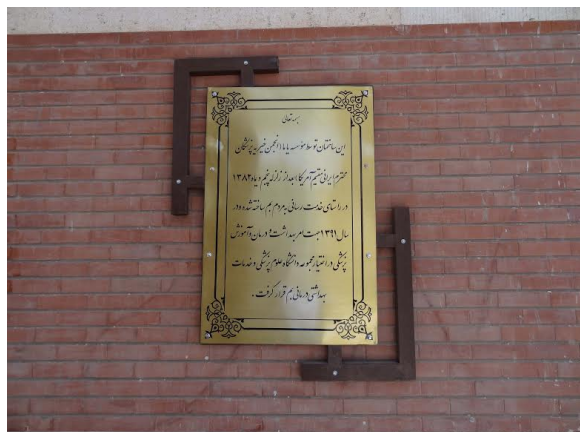 بسمه تعالی
این ساختمان توسط مؤسسه پاما (انجمن خیریه پزشکان
محترم ایرانی مقیم آمریکا) بعد از زلزله پنجم دیماه ۱۳۸۲
در راستای خدمت رسانی به مردم بم ساخته شده و در
سال ۱۳۹۱ جهت امر بهداشت و درمان و آموزش
پزشکی در اختیار مجموعه دانشگاه علوم پزشکی و خدمات
بهداشتی درمانی بم قرار گرفت .